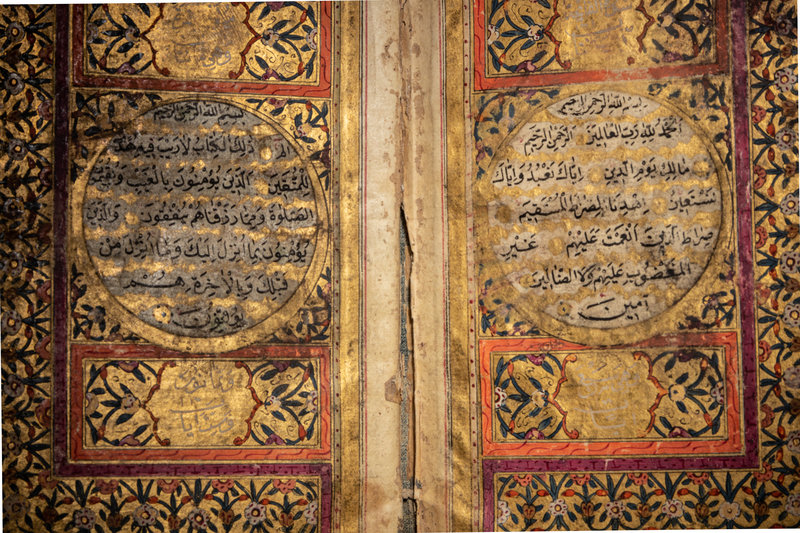 بسم الله الرحمن الرحيم
الحمد لله رب العالمين الرحمن الرحيم
مالك يوم الدين اياك نعبد واياك
نستعين اهدنا الصراط المستقيم
صراط الذين انعمت عليهم غير
المغضوب عليهم ولا الضالين
آمين
بسم الله الرحمن الرحيم
الم ذلك الكتاب لا ريب فيه هدى
للمتقين الذين يؤمنون بالغيب ويقيمون
الصلوة ومما رزقناهم ينفقون والذين
يؤمنون بما انزل اليك وما انزل من
قبلك وبالآخرة هم
يوقنون